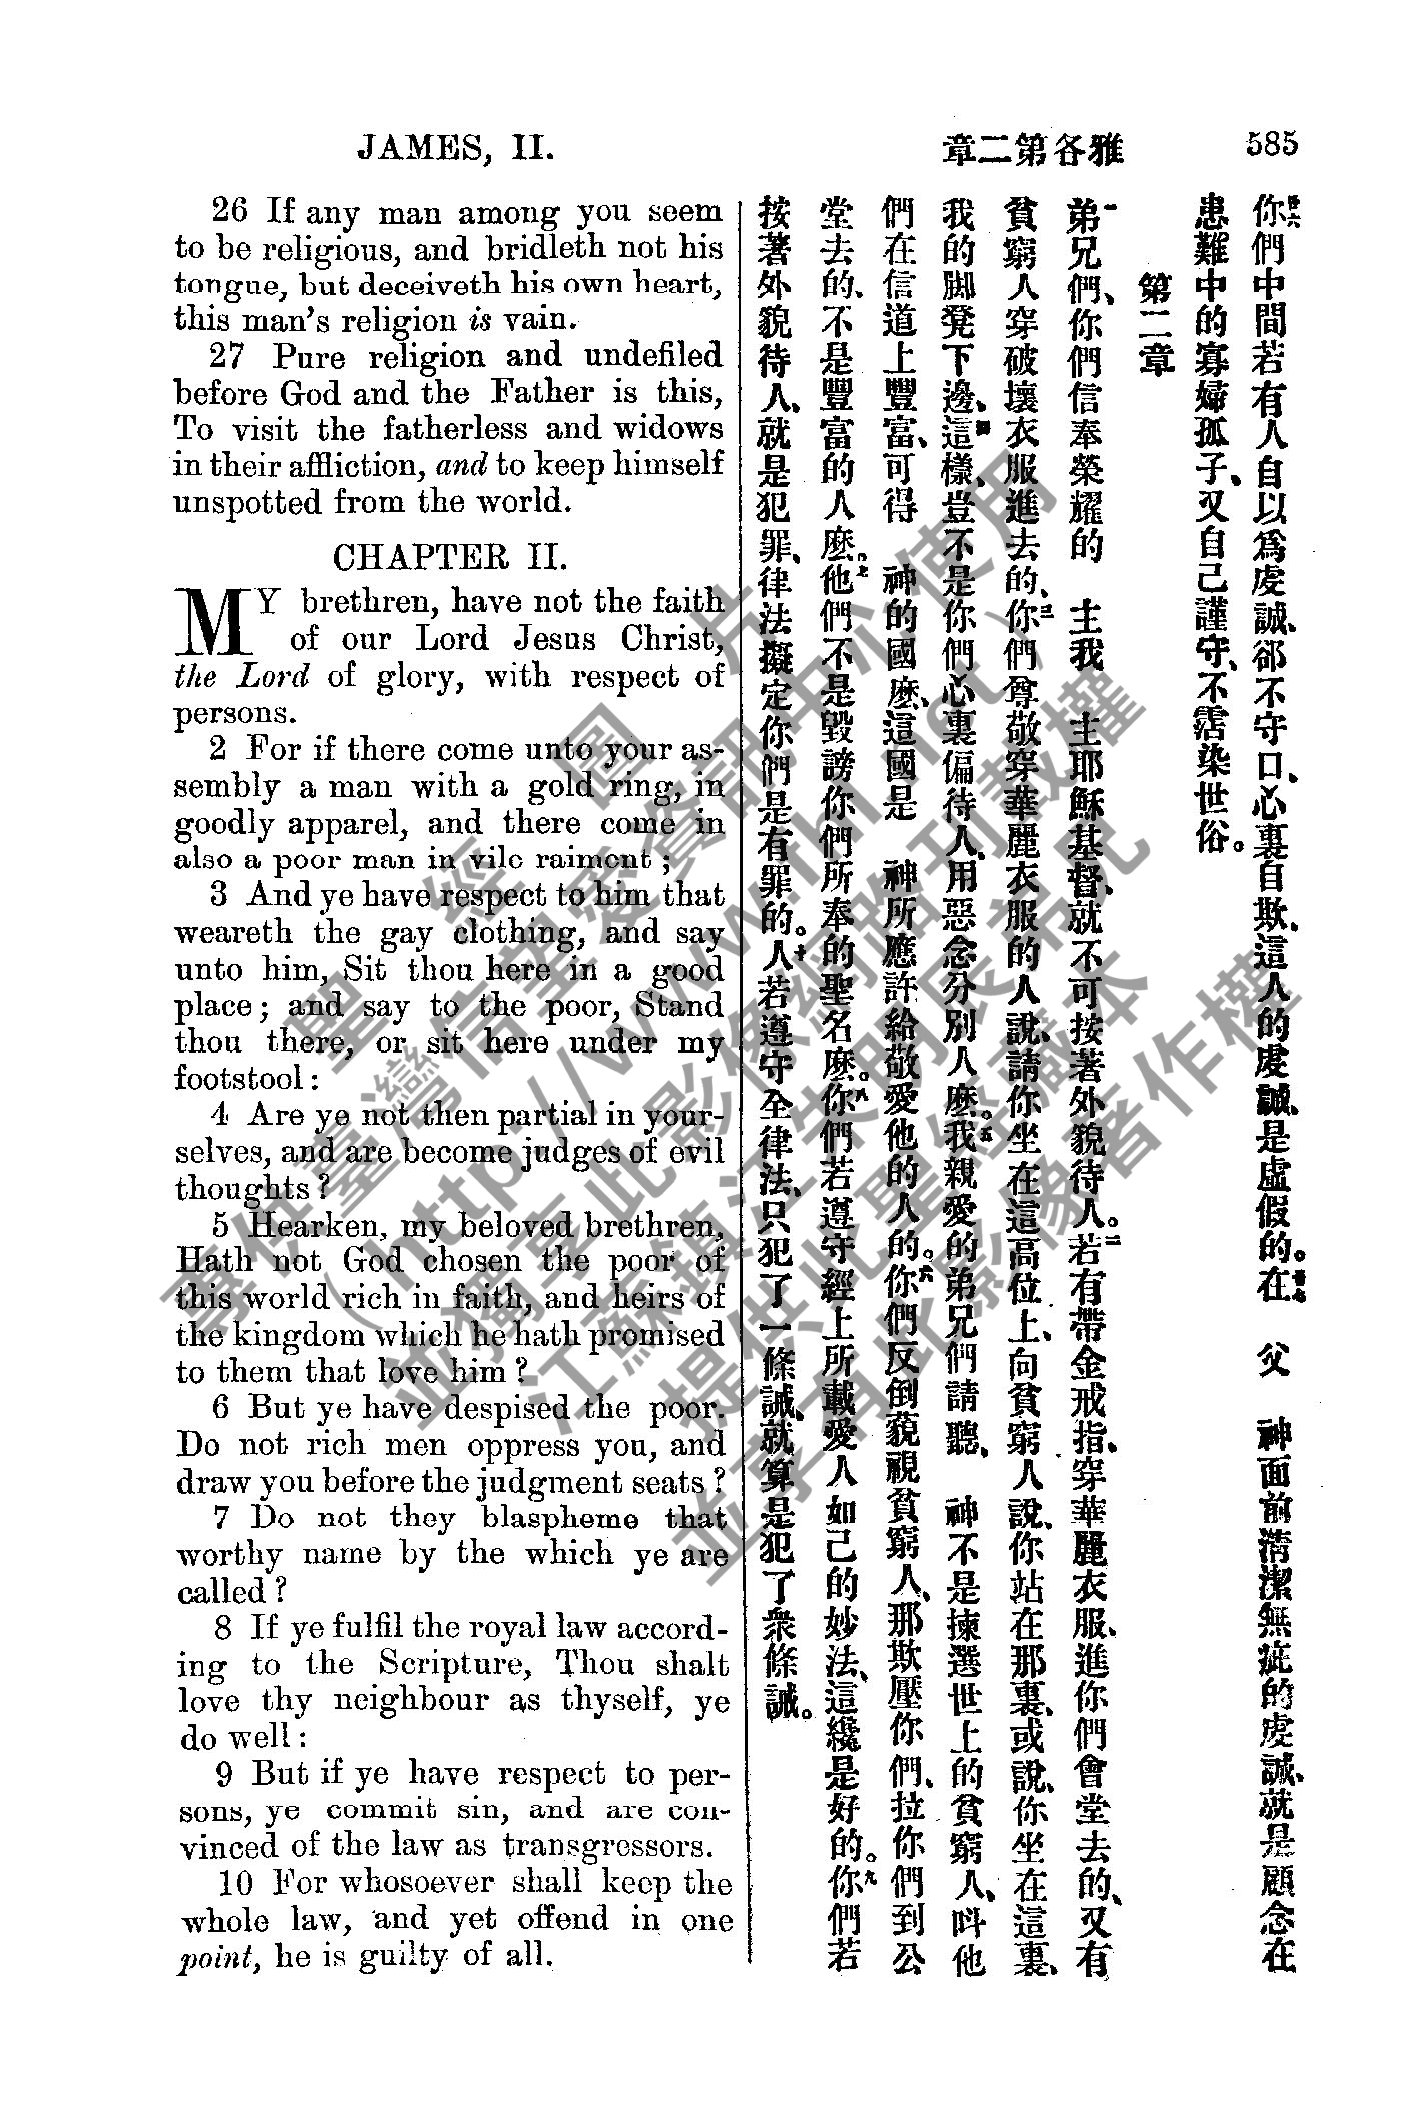 JAMES, II.
章二第各雅
585
26 If any man among you seem
to be religious, and bridleth not his
tongue, but deceiveth his own heart,
this man's religion is vain.
27 Pure religion and undefiled
before God and the Father is this,
To visit the fatherless and widows
in their affliction, and to keep himself
unspotted from the world.
CHAPTER II.
MY brethren, have not the faith
of our Lord Jesus Christ,
the Lord of glory, with respect of
persons.
2 For if there come unto your as-
sembly a man with a gold ring, in
goodly apparel, and there come in
also a poor man in vile raiment;
3 And ye have respect to him that
weareth the gay clothing, and say
unto him, Sit thou here in a good
place; and say to the poor, Stand
thou there, or sit here under my
footstool:
4 Are ye not then partial in your-
selves, and are become judges of evil
thoughts?
5 Hearken, my beloved brethren,
Hath not God chosen the poor of
this world rich in faith, and heirs of
the kingdom which he hath promised
to them that love him?
6 But ye have despised the poor.
Do not rich men oppress you, and
draw you before the judgment seats?
7 Do not they blaspheme that
worthy name by the which ye are
called?
8 If ye fulfil the royal law accord-
ing to the Scripture, Thou shalt
love thy neighbour as thyself, ye
do well:
9 But if ye have respect to per-
sons, ye commit sin, and are con-
vinced of the law as transgressors.
10 For whosoever shall keep the
whole law, and yet offend in one
point, he is guilty of all.
你們中間若有人自以爲虔誠、郤不守口、心裏自欺、這人的虔誠、是虛假的。在 父 神面前淸潔無疵的虔誠、就是顧念在
患難中的寡婦孤子、又自己謹守、不霑染世俗。
第二章
一弟兄們、你們信奉榮耀的 主我 主耶穌基督、就不可按著外貌待人。二若有帶金戒指、穿華麗衣服、進你們會堂去的、又有
貧窮人穿破壞衣服進去的、三你們尊敬穿華麗衣服的人說、請你坐在這高位上、向貧窮人說、你站在那裏、或說、你坐在這裏、
我的脚凳下邊、四這樣、豈不是你們心裏偏待人、用惡念分別人麽。五我親愛的弟兄們請聽、 神不是揀選世上的貧窮人、呌他
們在信道上豐富、可得 神的國麽、這國是 神所應許給敬愛他的人的。六你們反倒藐視貧窮人、那欺壓你們、拉你們到公
堂去的、不是豐富的人麽。七他們不是毀謗你們所奉的聖名麽。八你們若遵守經上所載愛人如己的妙法、這纔是好的。九你們若
按著外貌待人、就是犯罪、律法擬定你們是有罪的。十人若遵守全律法、只犯了一條誡、就算是犯了衆條誡。